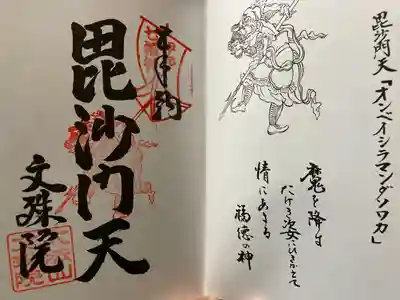 毘沙門天「オンベイシラマンダソワカ」
魔を降す
たけき姿にひきかえて
情にあまる
福徳の神
奉拝
毘沙門天
文殊院